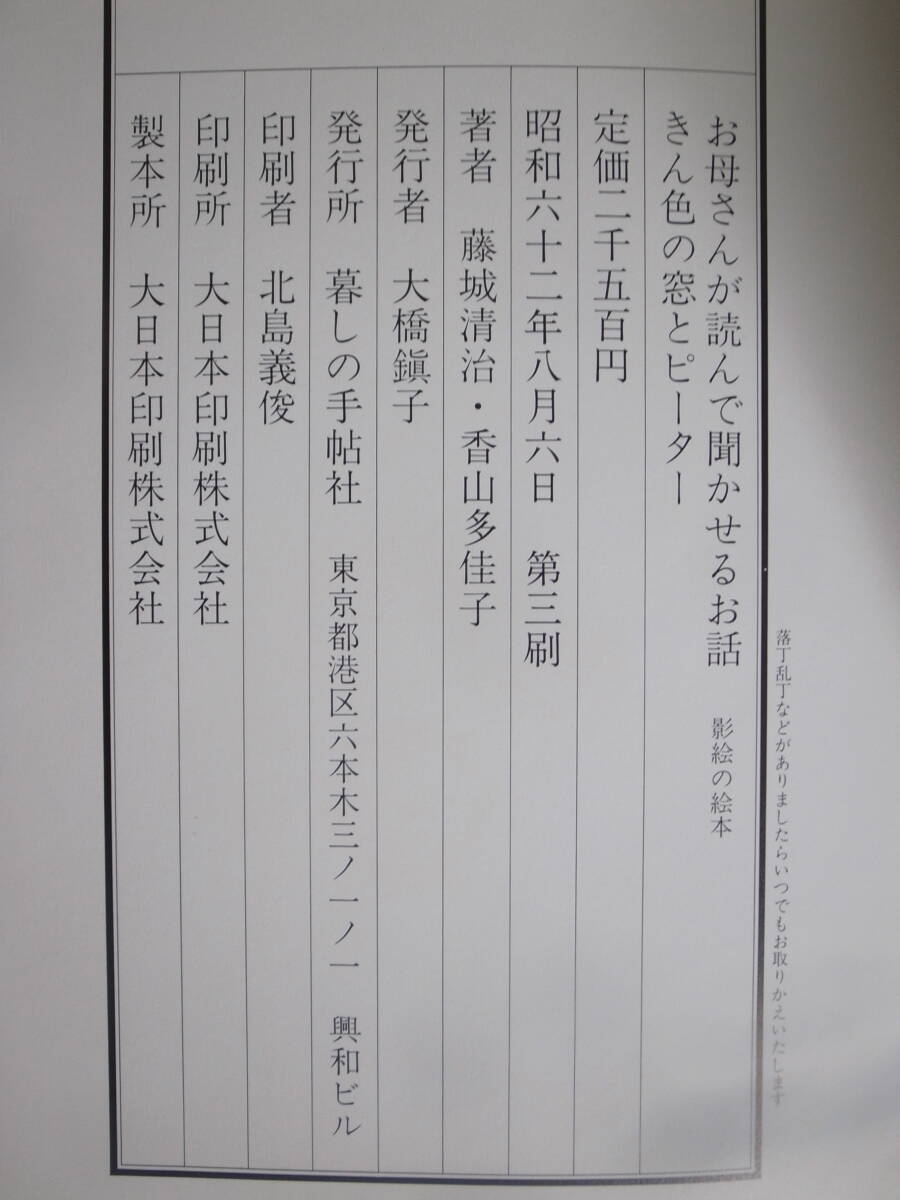 落丁乱丁などがありましたらいつでもお取りかえいたします
お母さんが読んで聞かせるお話　影絵の絵本
きん色の窓とピーター
定価二千五百円
昭和六十二年八月六日　第三刷
著者　藤城清治・香山多佳子
発行者　大橋鎭子
発行所　暮しの手帖社　東京都港区六本木三ノ一ノ一　興和ビル
印刷者　北島義俊
印刷所　大日本印刷株式会社
製本所　大日本印刷株式会社